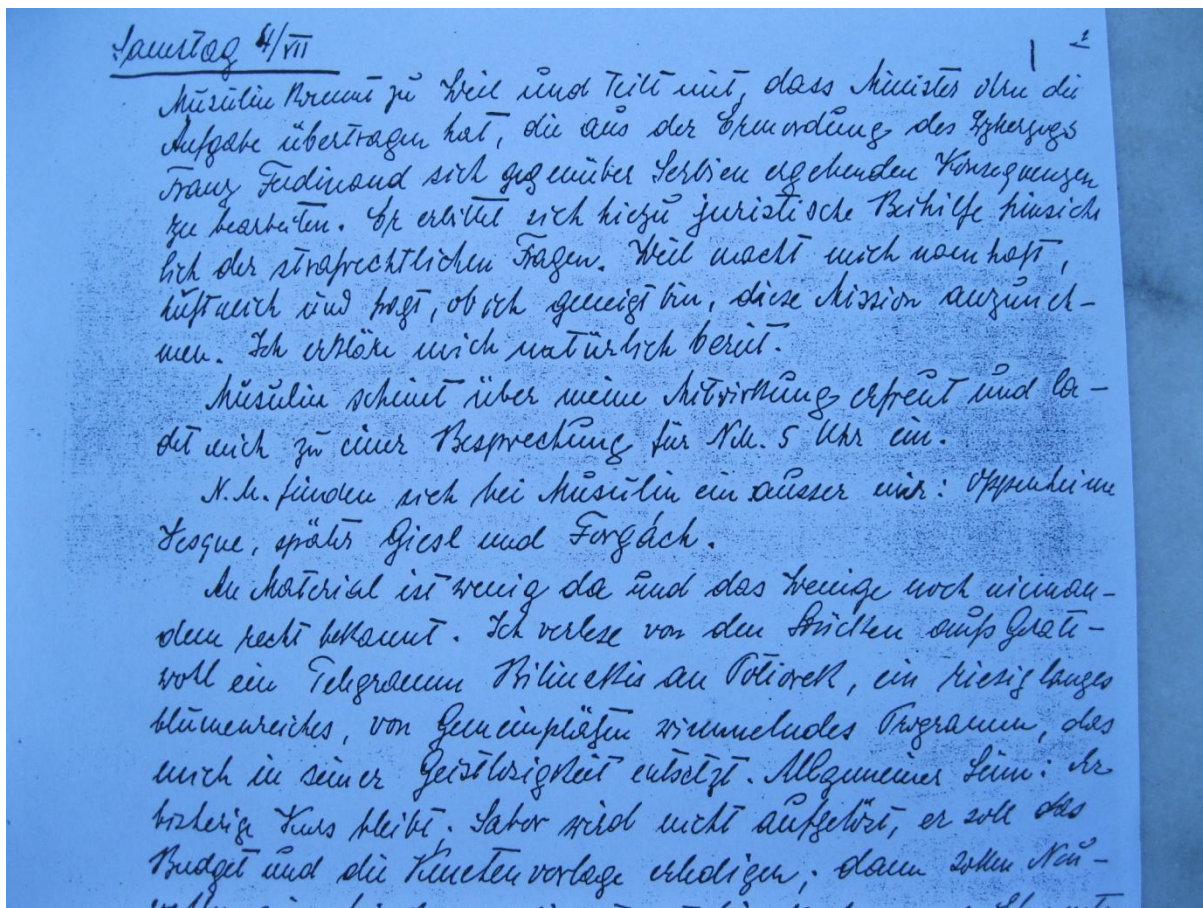 Samstag 4/VII
1
Musulin kommt zu Weil und teilt mit, dass Minister ihm die
Aufgabe übertragen hat, die aus der Ermordung des Erzherzogs
Franz Ferdinand sich gegenüber Serbien ergebenden Konsequenzen
zu bearbeiten. Er erbittet sich hiezu juristische Beihilfe hinsicht
lich der strafrechtlichen Fragen. Weil macht mich namhaft,
ruft mich und fragt, ob ich geneigt bin, diese Mission anzuneh-
men. Ich erkläre mich natürlich bereit.
Musulin scheint über meine Mitwirkung erfreut und la-
det mich zu einer Besprechung für N.M. 5 Uhr ein.
N.M. finden sich bei Musulin ein ausser mir: Oppenheime
Vesque, später Giesl und Forgách.
An Material ist wenig da und das Wenige noch nieman-
dem recht bekannt. Ich verlese von den Stücken aufs Grate-
wohl ein Telegramm Bilinskis an Potiorek, ein riesig langes
blumenreiches, von Gemeinplätzen wimmelndes Programm, das
mich in seiner Geistlosigkeit entsetzt. Allgemeiner Sinn: Der
bisherige Kurs bleibt. Sabor wird nicht aufgelöst, er soll das
Budget und die Kmetenvorlage erledigen; dann sollen Neu-